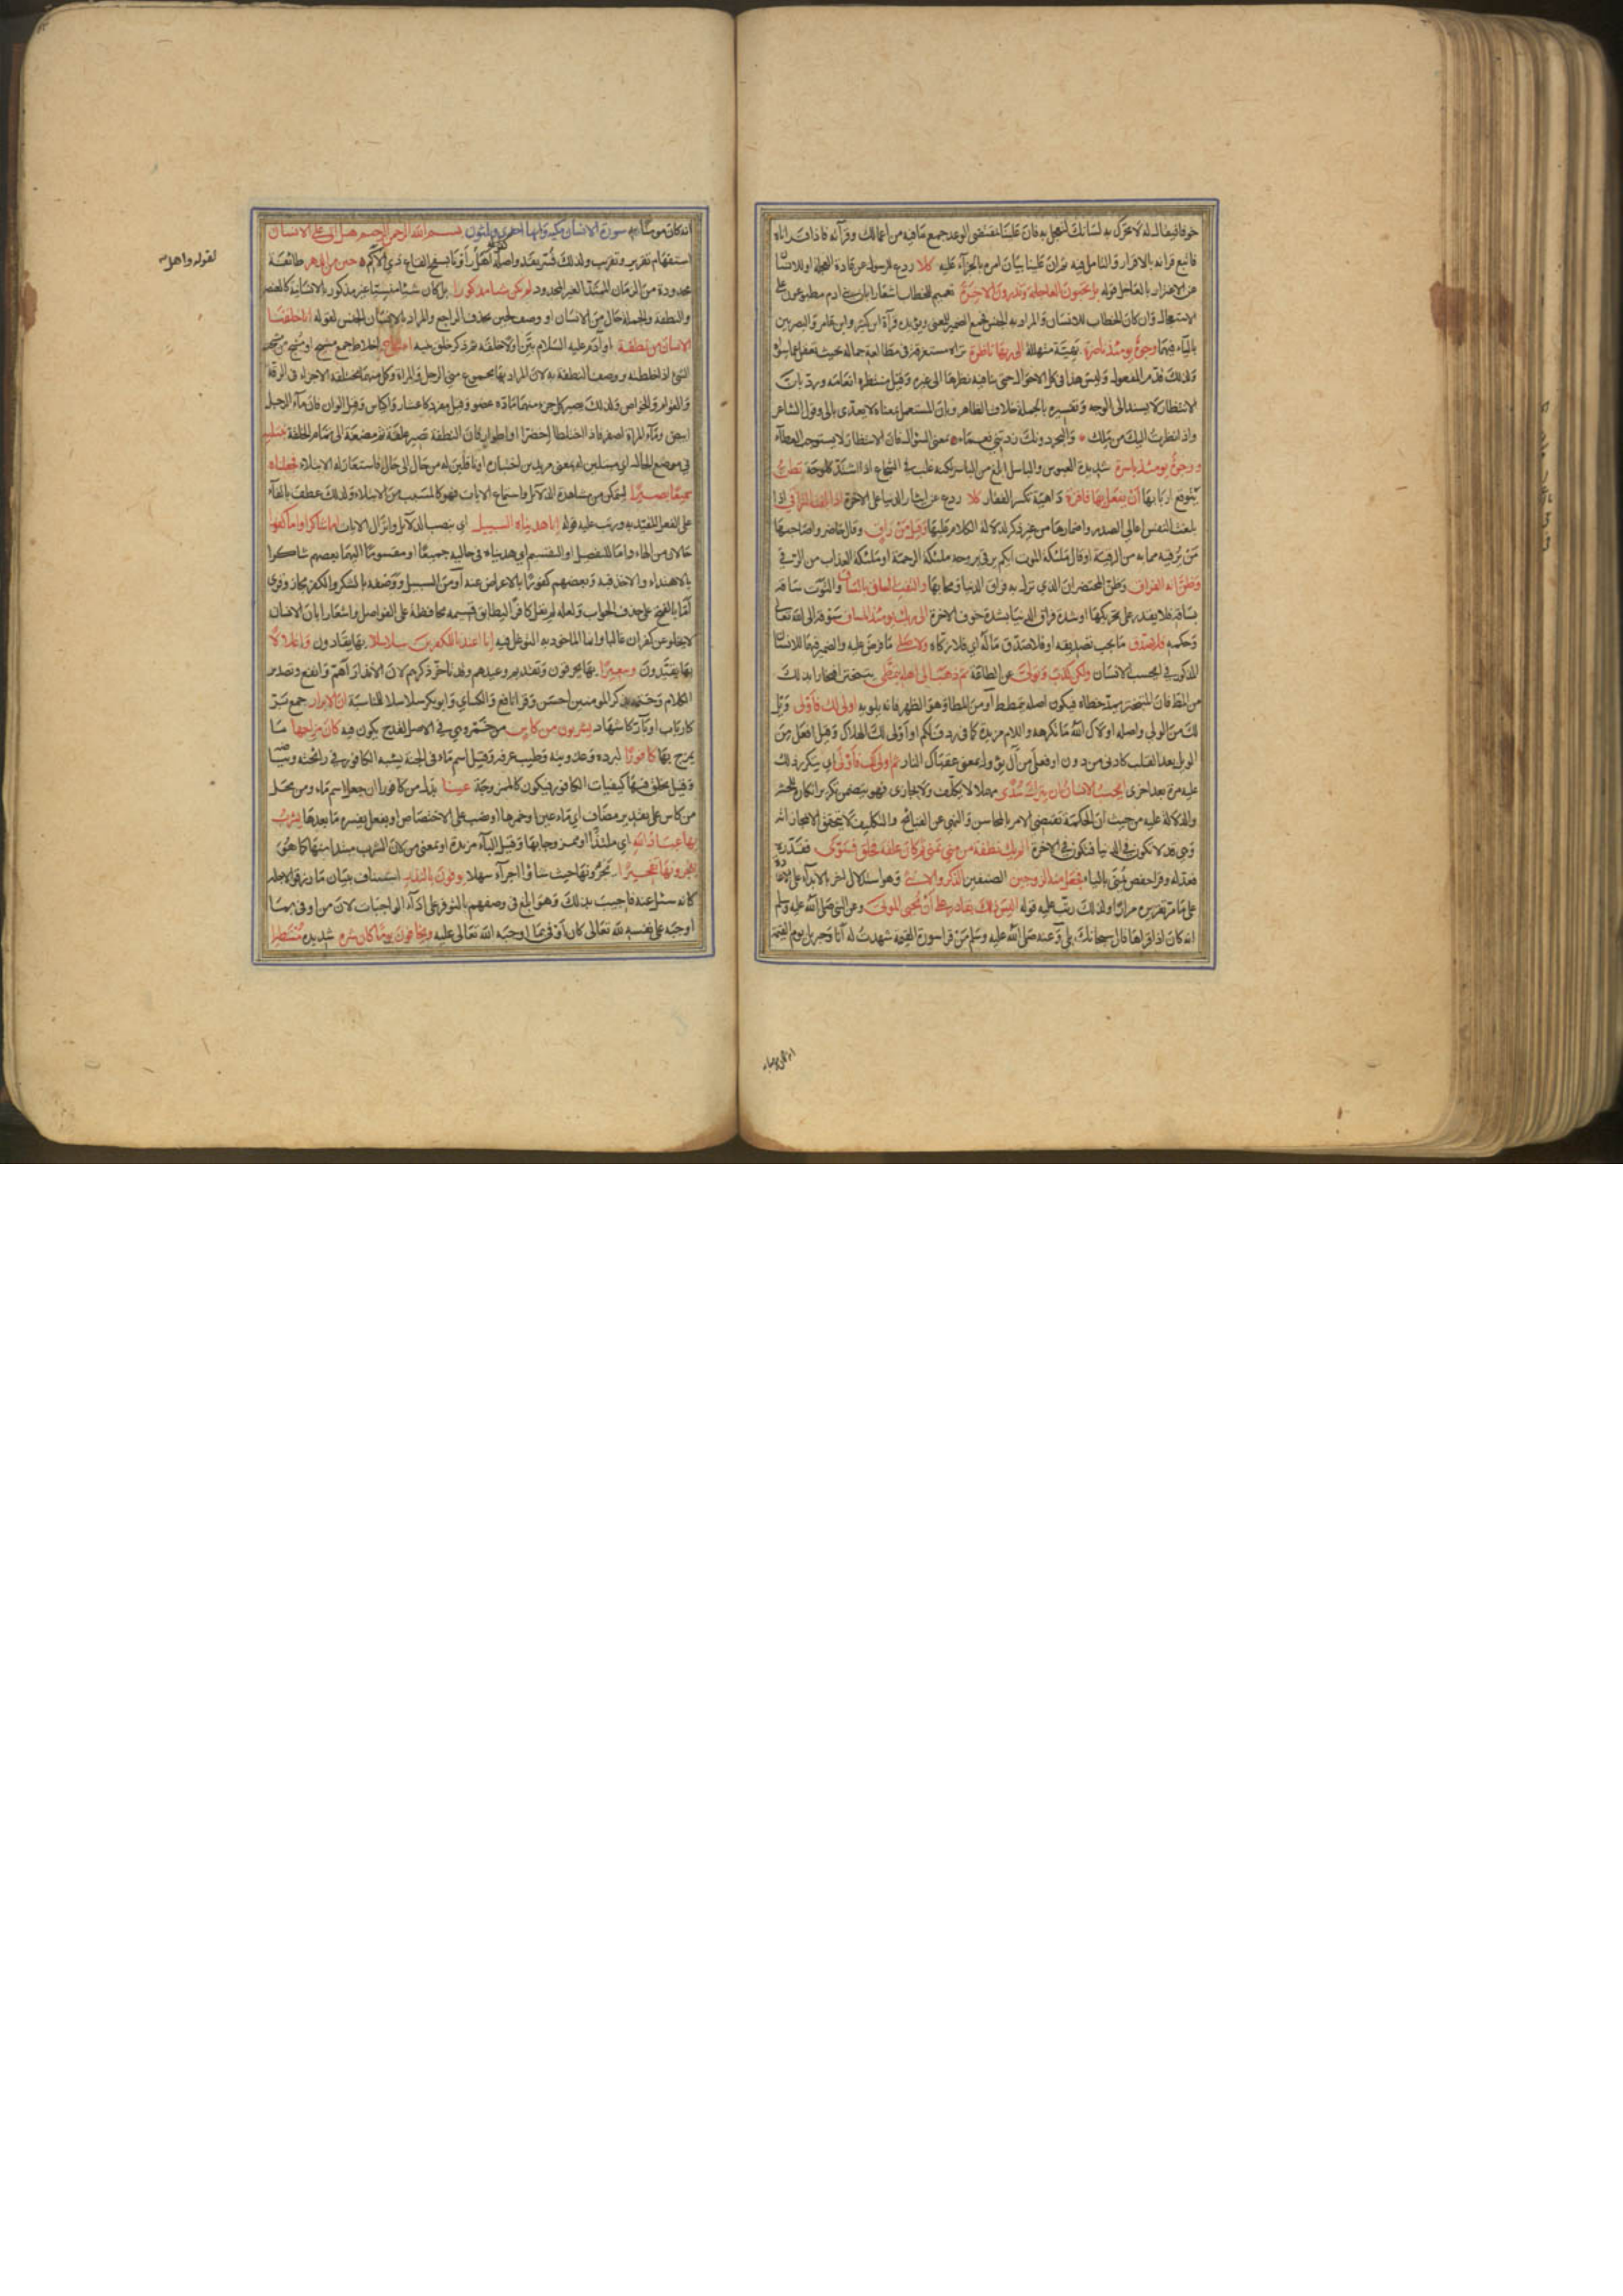 خوفا فيقال له لا تحرك به لسانك لتعجل به فان علينا بمقتضى الوعد جمع ما فيه من اعمالك وقرآنه فاذا قرأناه
فاتبع قرانه بالاقرار والتأمل فيه ثم ان علينا بيان امره بالجزآء عليه كلا ردع للرسول عن عادة العجلة او للانسان
عن الاغترار بالعاجل قوله بل تحبون العاجلة وتذرون الاخرة تعميم للخطاب اشعارا بان بني ادم مطبوعون على
الاستعجال وان كان الخطاب للانسان والمراد به الجنس فجمع الضمير للمعنى ويؤيده قرآة ابن كثير وابن عامر والبصريين
باليآء فيهما وجوه يومئذ ناضرة بهية متهللة الى ربها ناظرة تراه مستغرقة في مطالعة جماله بحيث تغفل عما سواه
ولذلك قدم المفعول وليس هذا في كل الاحوال حتى ينافيه نظرها الى غيره وقيل منتظرة انعامه ورد بان
الانتظار لا يسند الى الوجه وتفسيره بالجملة خلاف الظاهر وبان المستعمل بمعناه لا يعدى بالى وقول الشاعر
واذا نظرت اليك من ملك والبحر دونك زدتني نعماء بمعنى السؤال فان الانتظار لا يستوجب العطآء
ووجوه يومئذ باسرة شديدة العبوس والباسل ابلغ من الباسر لكنه غلب في الشجاع اذا اشتد كلوحه تظن
يتوقع اربابها ان يفعل بها فاقرة داهية تكسر الفقار كلا ردع عن ايثار الدنيا على الاخرة اذا بلغت التراقي اذا
بلغت النفس اعالي الصدر واضمارها من غير ذكر لدلالة الكلام عليها وقيل من راق وقال حاضروا صاحبها
من يرقيه مما به من الرقية او قال ملئكة الموت ايكم يرقى بروحه ملئكة الرحمة او ملئكة العذاب من الرقي
وظن انه الفراق وظن المحتضر ان الذي نزل به فراق الدنيا ومحابها والتفت الساق بالساق والتوت ساقه
بساقه فلا يقدر على تحريكها او شدة فراق الدنيا بشدة خوف الاخرة الى ربك يومئذ المساق سوقه الى الله تعالى
وحكمه فلا صدق ما يجب تصديقه او فلا صدق ماله اي فلا زكاه ولا صلى ما فرض عليه والضمير فيهما للانسان
المذكور في ايحسب الانسان ولكن كذب وتولى عن الطاعة ثم ذهب الى اهله يتمطى يتبختر افتخارا بذلك
من المط فان المتبختر يمد خطاه فيكون اصله يتمطط او من المطا وهو الظهر فانه يلويه اولى لك فأولى ويل
لك من الولي واصله اولاك الله ما تكرهه واللام مزيدة كما في ردف لكم او اولى لك الهلاك وقيل افعل من
الويل بعد القلب كادنى من دون او فعلى من آل يؤول بمعنى عقباك النار ثم اولى لك فأولى اي يتكرر ذلك
عليه مرة بعد اخرى ايحسب الانسان ان يترك سدى مهملا لا يكلف ولا يجازى فهو يتضمن تكرير انكاره للحشر
والدلالة عليه من حيث ان الحكمة تقتضي الامر بالمحاسن والنهي عن القبائح والتكليف لا يتحقق الا بمجازاة
وهي قد لا تكون في الدنيا فتكون في الاخرة الم يك نطفة من مني تمنى ثم كان علقة فخلق فسوى فقدره
فعدله وقرا حفص يمنى بالياء فجعل منه الزوجين الصنفين الذكر والانثى وهو استدلال اخر بالابدآء على الاعادة
على ما مر تقريره مرارا ولذلك رتب عليه قوله اليس ذلك بقادر على ان يحيي الموتى وعن النبي صلى الله عليه وسلم
انه كان اذا قراها قال سبحانك بلى وعنه صلى الله عليه وسلم من قرا سورة القيمة شهدت له انا وجبريل يوم القيمة
انه كان مومنا به سورة الانسان مكية وايها احدى وثلثون بسم الله الرحمن الرحيم هل اتى على الانسان
استفهام تقرير وتقريب ولذلك فسر بقد واصله اهل كقوله أهل رأونا بسفح القاع ذي الاكم حين من الدهر طائفة
محدودة من الزمان الممتد الغير المحدود لم يكن شيا مذكورا بل كان شيئا منسيا غير مذكور بالانسانية كالعنصر
والنطفة والجملة حال من الانسان او وصف لحين بحذف الراجع والمراد بالانسان الجنس لقوله انا خلقنا
الانسان من نطفة او آدم عليه السلام بين اولا خلقه ثم ذكر خلق بنيه امشاج اخلاط جمع مشج او مشيج من مشجت
الشئ اذا خلطته ووصف النطفة به لان المراد بها مجموع مني الرجل والمراة وكل منهما مختلفة الاجزاء في الرقة
والقوام والخواص ولذلك يصير كل جزء منهما مادة عضو وقيل مفرد كاعشار واكياش وقيل الوان فان مآء الرجل
ابيض ومآء المراة اصفر فاذا اختلطا اخضرا او اطوار فان النطفة تصير علقة ثم مضغة الى تمام الخلقة نبتليه
في موضع الحال اي مبتلين له بمعنى مريدين اختباره او ناقلين له من حال الى حال فاستعار له الابتلاء فجعلناه
سميعا بصيرا ليتمكن من مشاهدة الدلآئل واستماع الايات فهو كالمسبب من الابتلاء ولذلك عطف بالفآء
على الفعل المقيد به ورتب عليه قوله انا هديناه السبيل اي بنصب الدلآئل وانزال الايات اما شاكرا واما كفورا
حالان من الهاء واما للتفصيل او التقسيم اي هديناه في حاليه جميعا او مقسوما اليهما بعضهم شاكرا
بالاهتداء والاخذ فيه وبعضهم كفورا بالاعراض عنه او من السبيل ووصفه بالشكر والكفر مجاز وقرئ
أما بالفتح على حذف الجواب ولعله لم يقل كافرا ليطابق قسيمه محافظة على الفواصل واشعارا بان الانسان
لا يخلو عن كفران غالبا وانما الماخوذ به التوغل فيه انا اعتدنا للكفرين سلاسلا بها يقادون واغلالا
بها يقيدون وسعيرا بها يحرقون وتقديم وعيدهم وقد تاخر ذكرهم لان الانذار اهم وانفع وتصدير
الكلام وختمه بذكر المومنين احسن وقرا نافع والكسآئي وابو بكر سلاسلا للمناسبة ان الابرار جمع بر
كارباب او بار كاشهاد يشربون من كاس من خمر وهي في الاصل القدح يكون فيه كان مزاجها ما
يمزج بها كافورا لبرده وعذوبته وطيب عرفه وقيل اسم مآء في الجنة يشبه الكافور في رائحته وبياضه
وقيل يخلق فيها كيفيات الكافور فيكون كالممزوجة عينا بدل من كافورا ان جعل اسم مآء ومن محل
من كاس على تقدير مضاف اي مآء عين او خمرها او نصب على الاختصاص او بفعل يفسره ما بعدها يشرب
بها عباد الله اي ملتذا او ممزوجا بها وقيل البآء مزيدة او بمعنى من لان الشرب مبتدا منها كما هو
يفجرونها تفجيرا يجرونها حيث شاؤا اجرآء سهلا يوفون بالنذر استيناف ببيان ما رزقوا لاجله
كانه سئل عنه فاجيب بذلك وهو ابلغ في وصفهم بالتوفر على ادآء الواجبات لان من اوفى بما
اوجبه على نفسه لله تعالى كان اوفى بما اوجبه الله تعالى عليه ويخافون يوما كان شره شديده مستطيرا
لقوله واهل